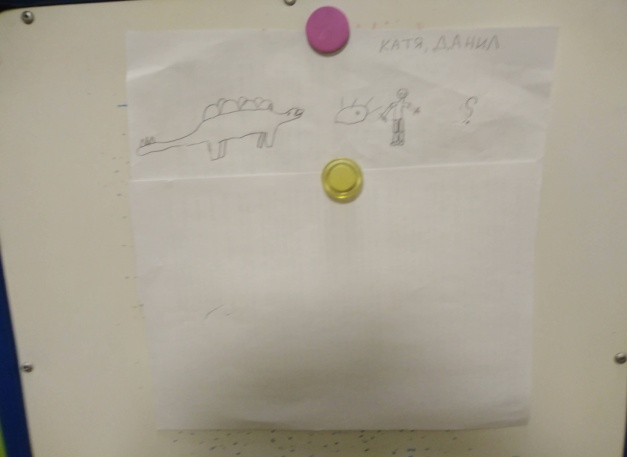 КАТЯ, ДАНИЛ
?